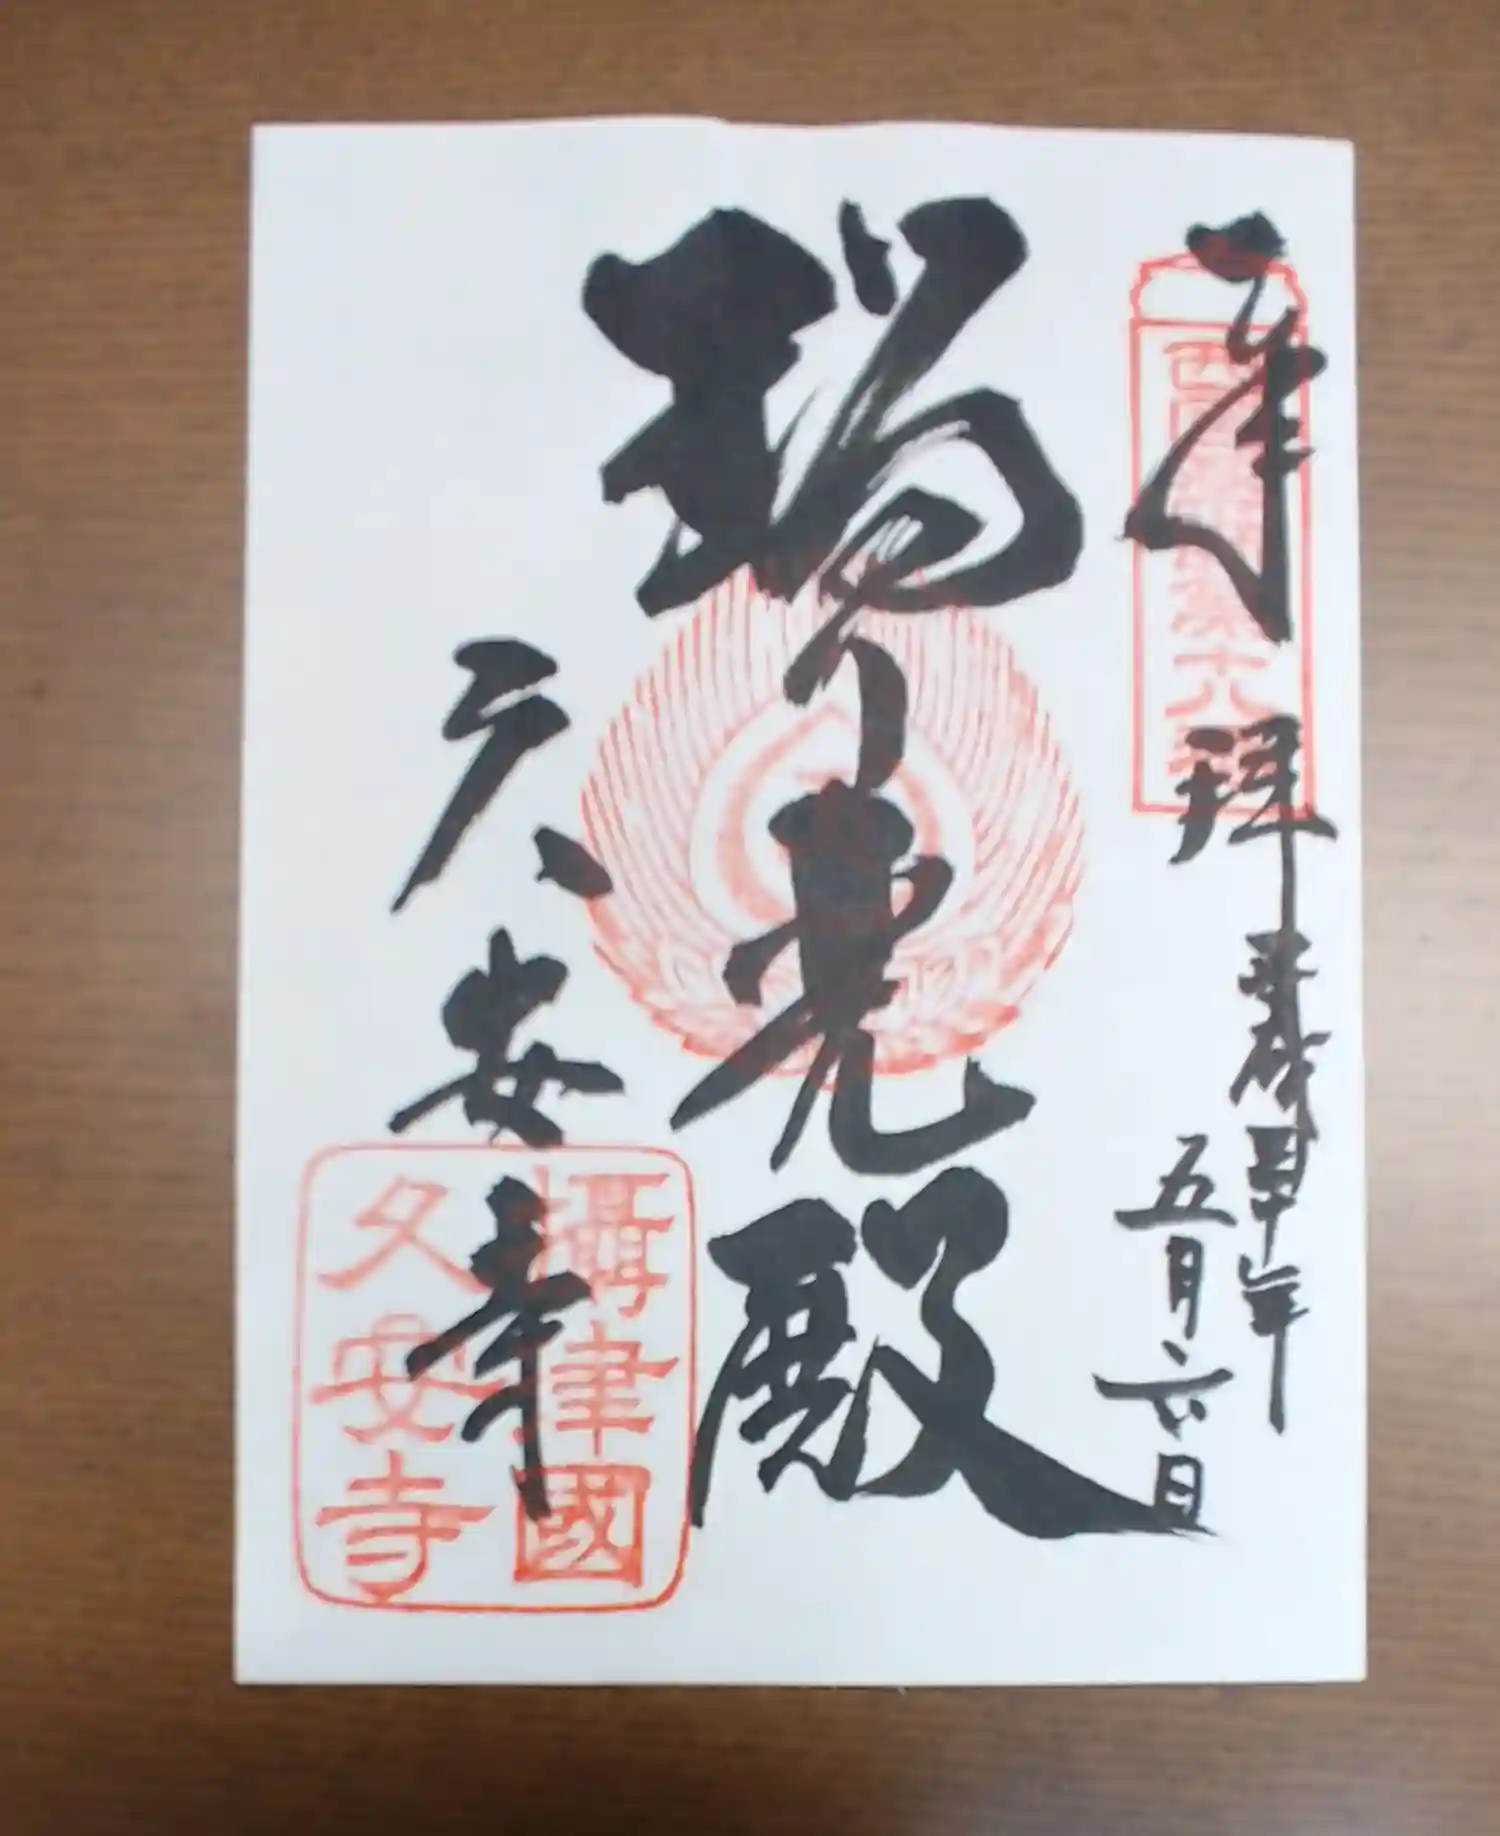 奉拝
西国薬師第十八番
平成 年
五月六日
瑠り光殿
久安寺
攝津國
久安寺